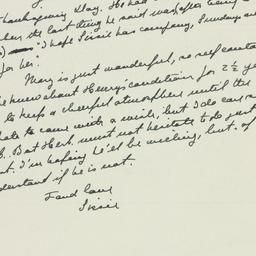 Thanksgiving Day. He had
the last thing he said was, after being
"I hope Sissie has company, Sundays are
for her."
Mary is just wonderful, no self conta
he knew about Henry's condition for 2 ½ years
to keep a cheerful atmosphere until the
hate to come with a wish, but I do earn
But Herb. must not hesitate to do just
I'm hoping he'll be willing but, of
understand if he is not.
Fond love
Sissie